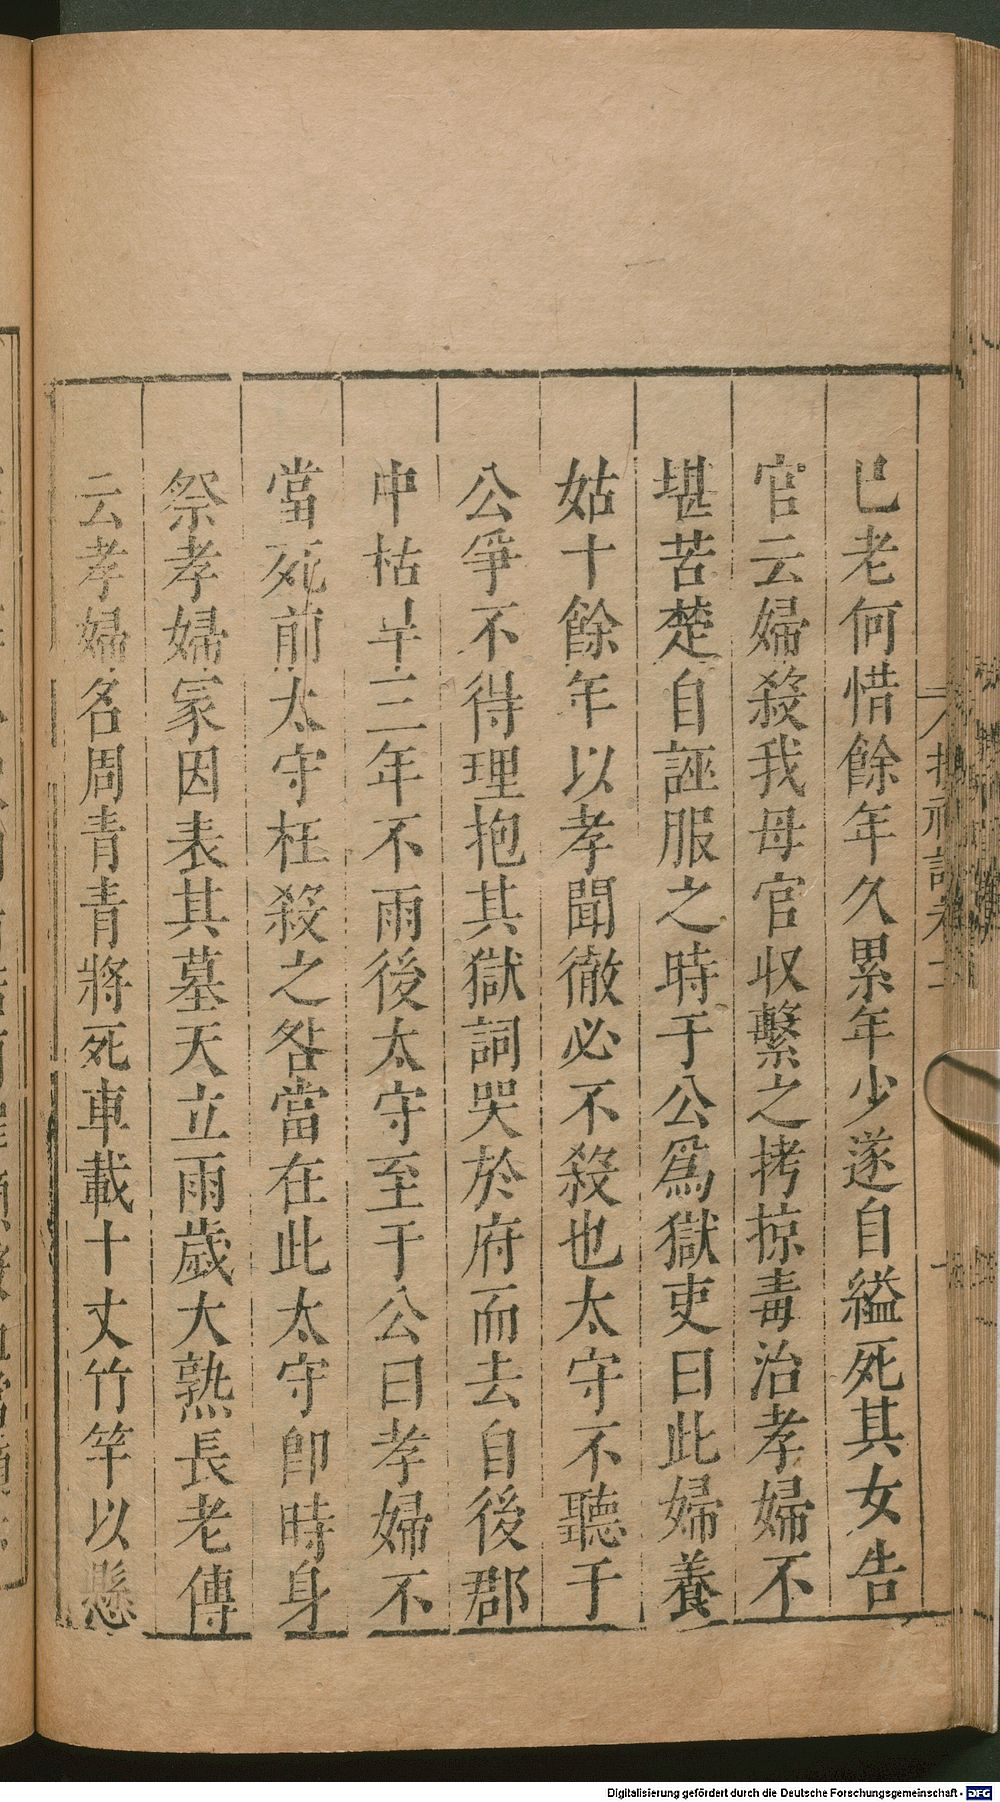 已老何惜餘年久累年少遂自縊死其女告
官云婦殺我母官収繫之拷掠毒治孝婦不
堪苦楚自誣服之時于公爲獄吏曰此婦養
姑十餘年以孝聞徹必不殺也太守不聽于
公爭不得理抱其獄詞哭於府而去自後郡
中枯旱三年不雨後太守至于公曰孝婦不
當死前太守枉殺之咎當在此太守即時身
祭孝婦家因表其墓天立雨歲大熟長老傳
云孝婦名周青青將死車載十丈竹竿以懸
Digitalisierung gefördert durch die Deutsche Forschungsgemeinschaft - DFG